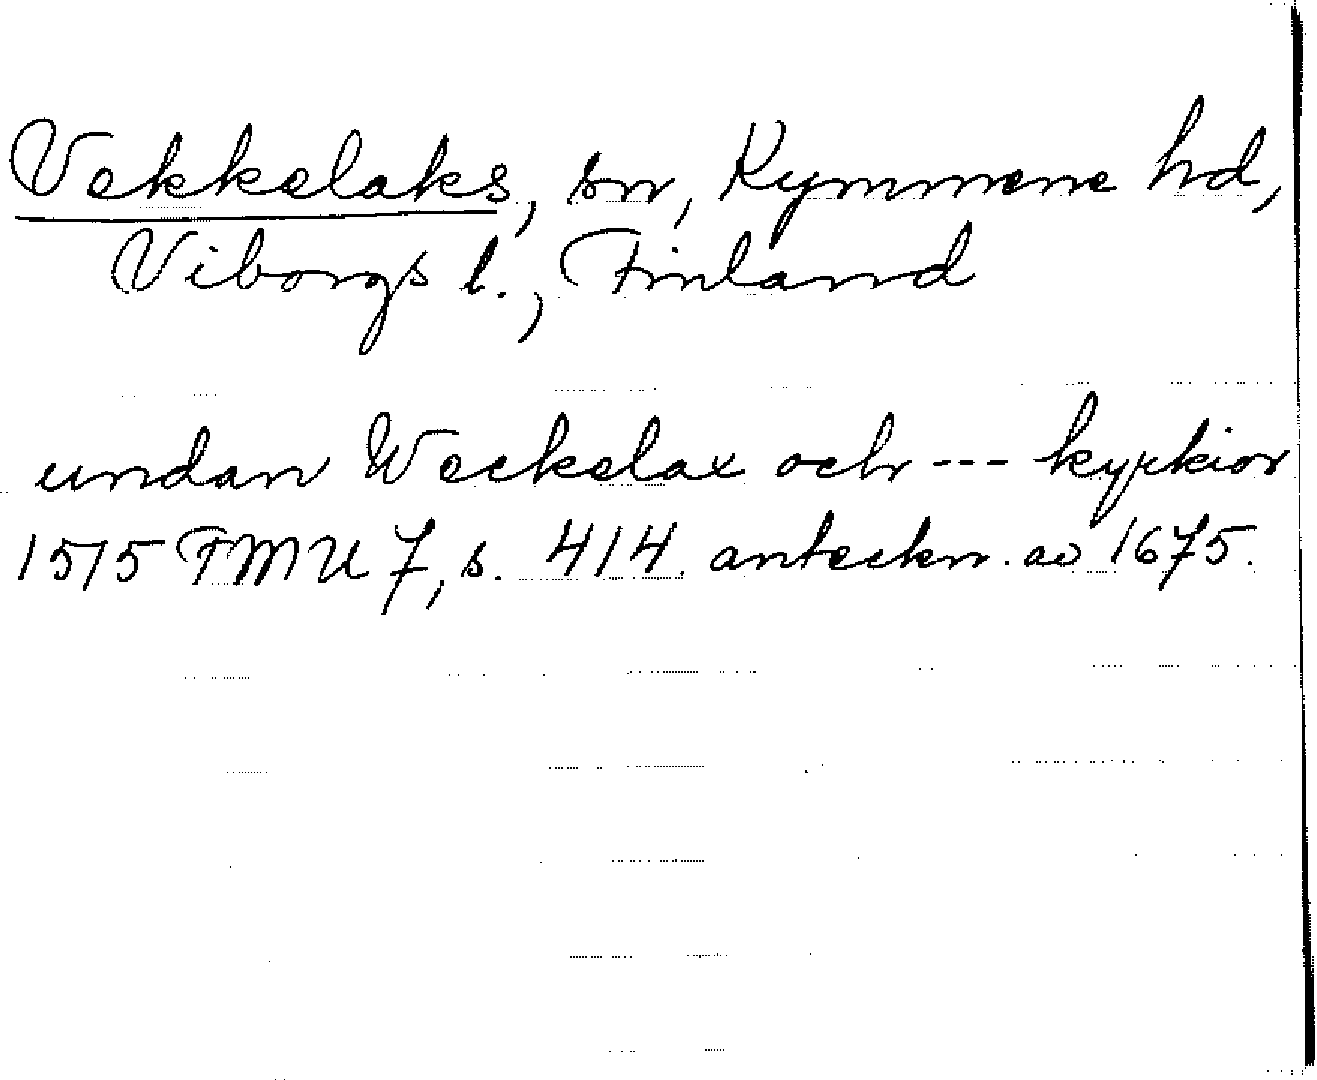 Vekkelaks, sn, Kymmene hd,
Viborgs l., Finland
undan Weckelax och --- kyrkior
1515 FMU 7, s. 414. anteckn. av 1675.